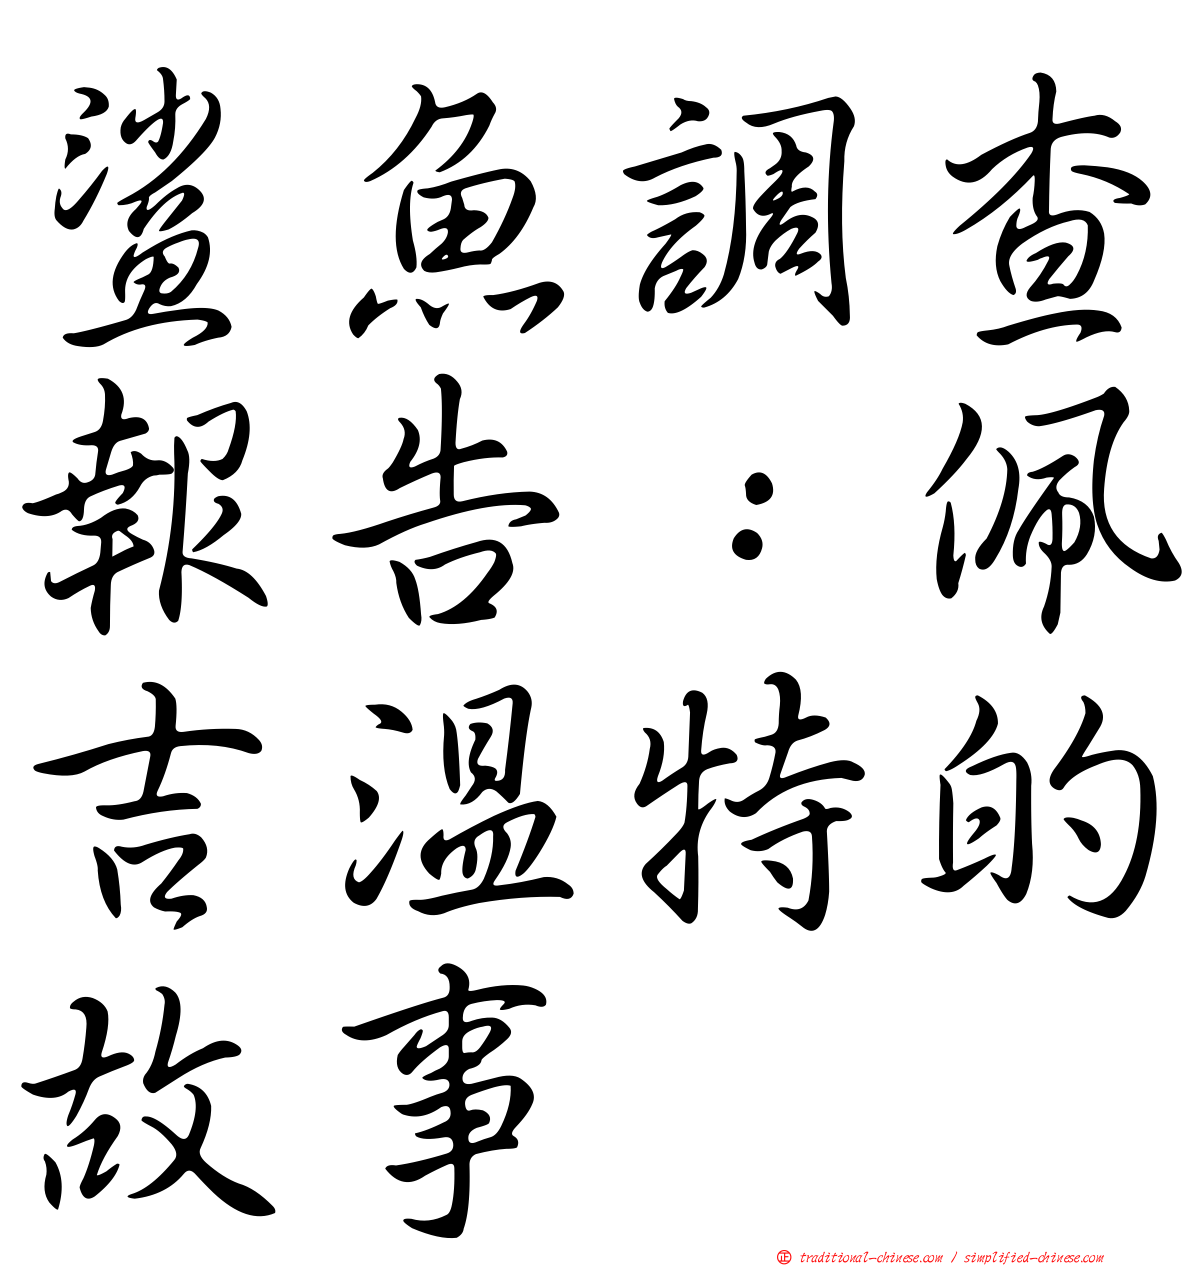 鯊魚調查
報告:佩
吉溫特的
故事
正 traditional-chinese.com / simplified-chinese.com